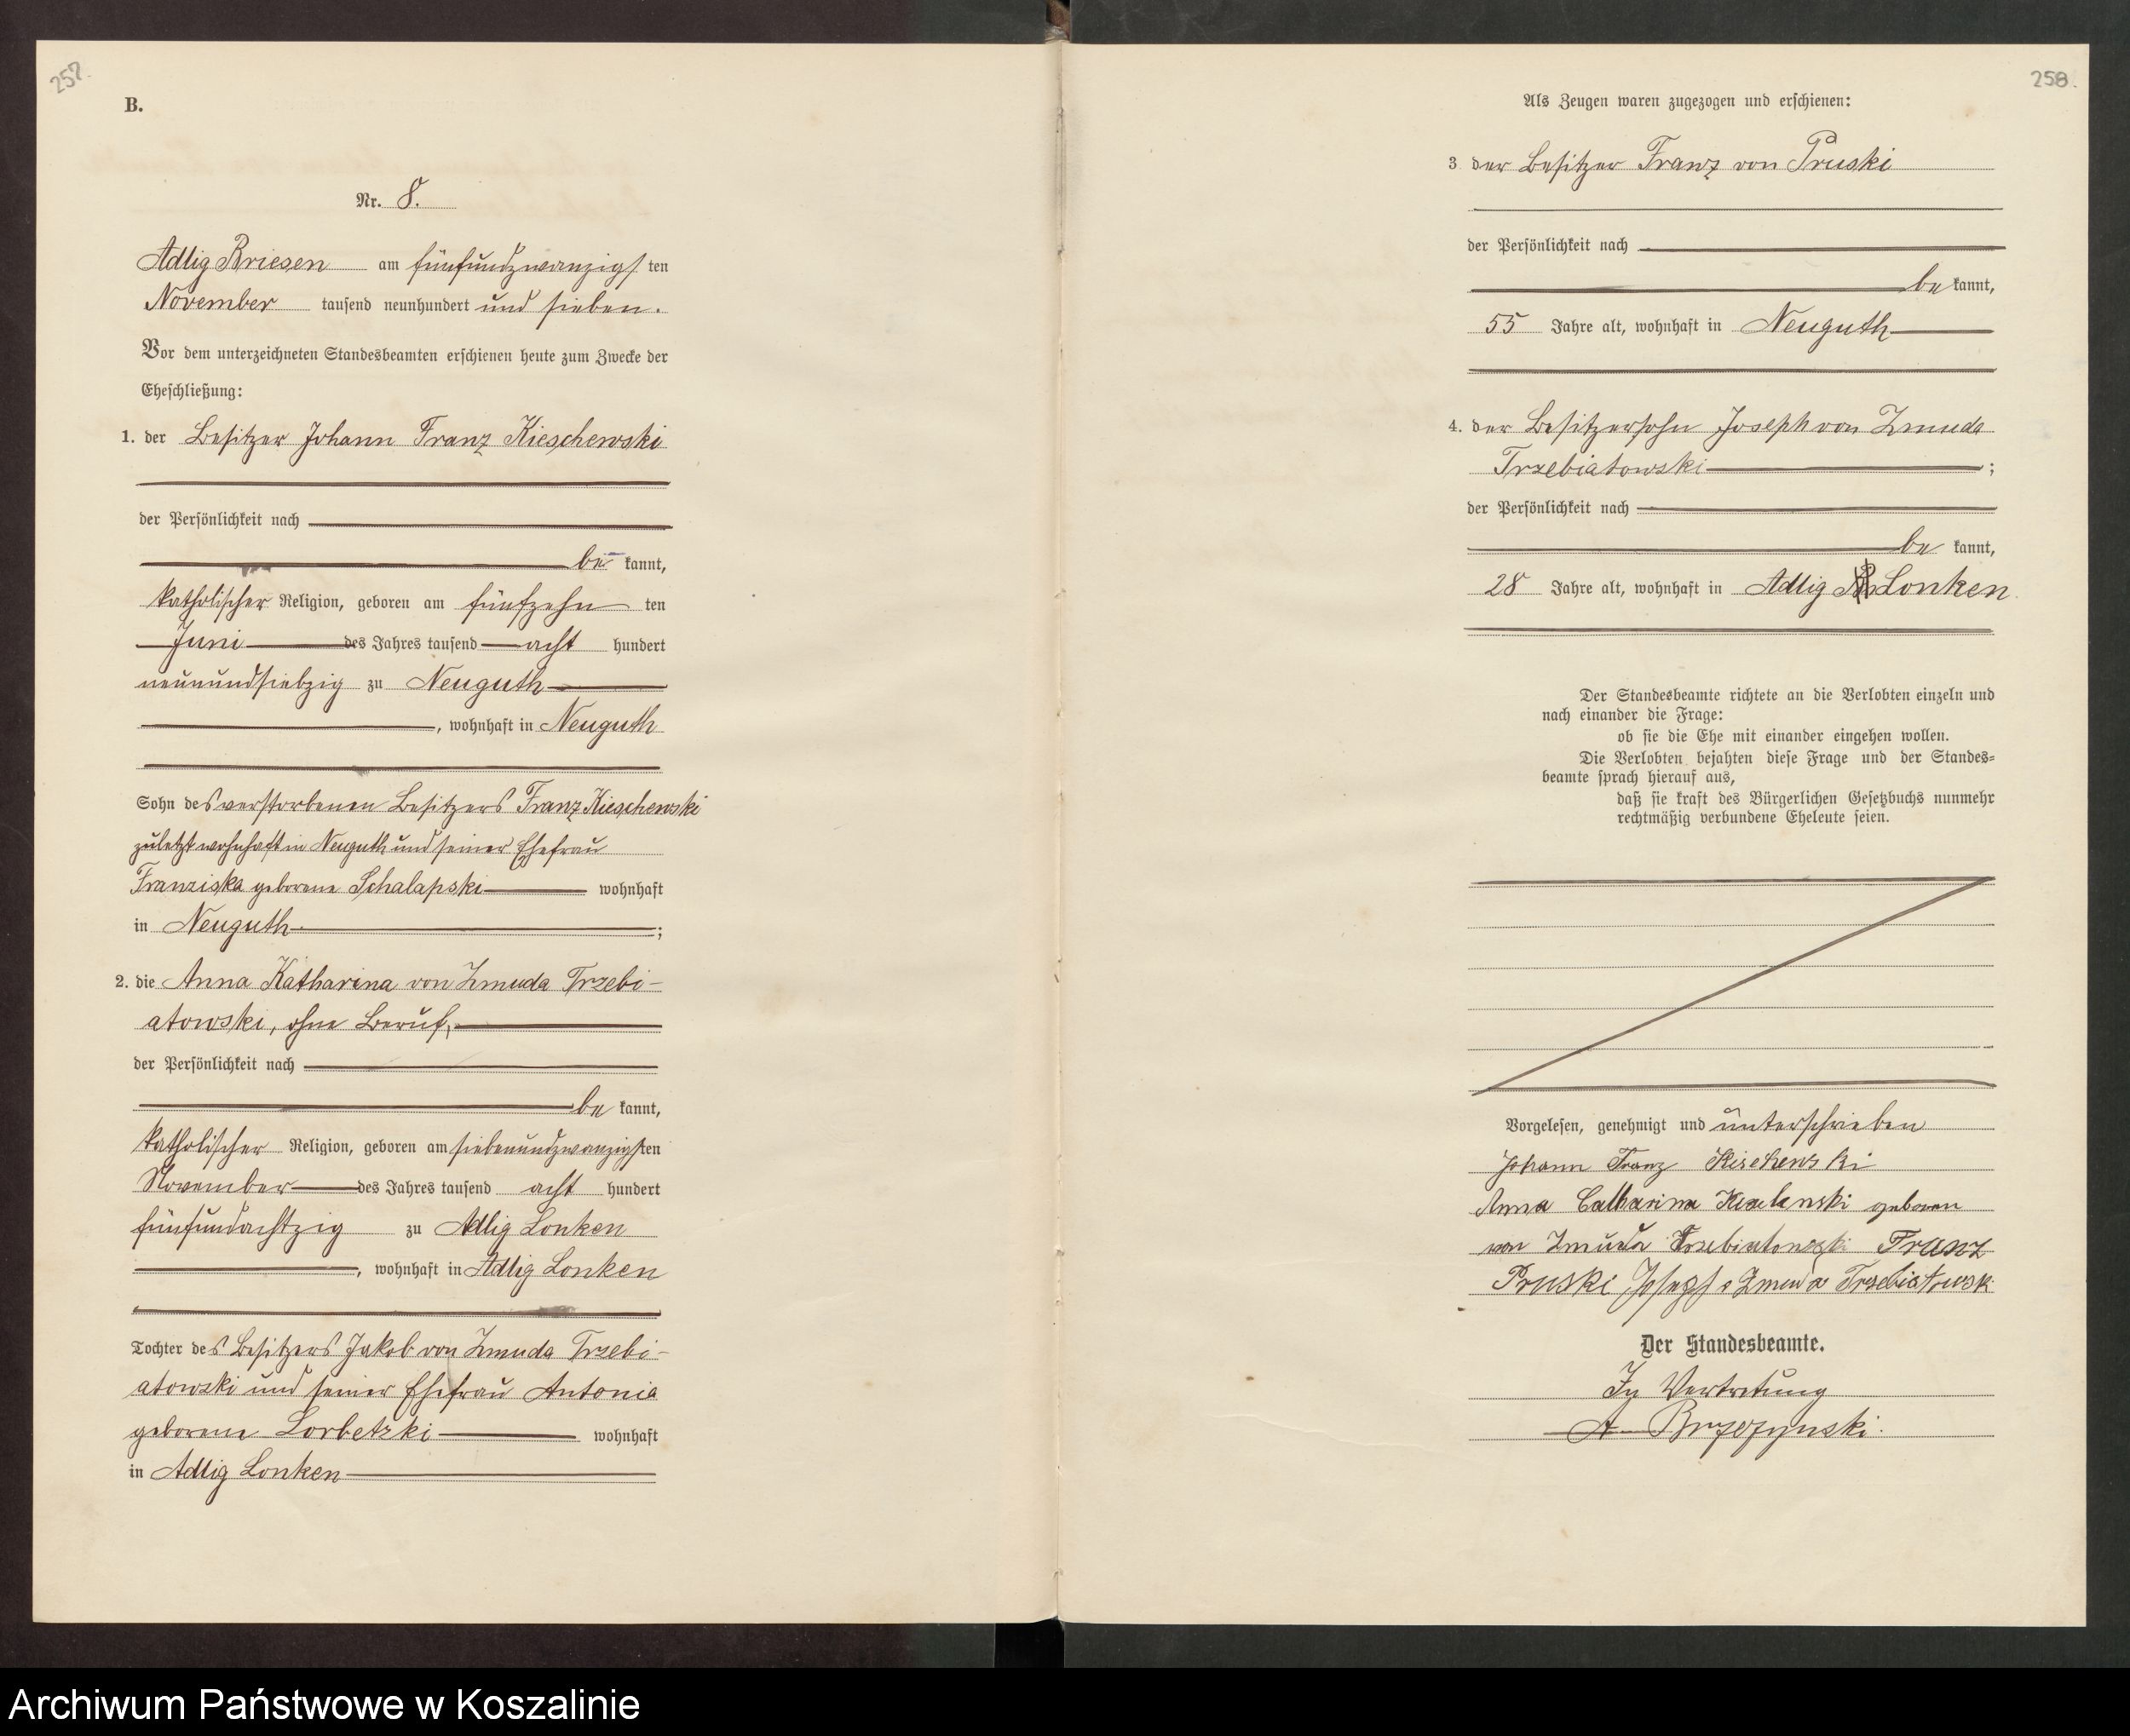 257.
B.
Nr. 8.
Adlig Briesen am fünfundzwanzigsten
November tausend neunhundert und sieben.
Vor dem unterzeichneten Standesbeamten erschienen heute zum Zwecke der
Eheschließung:
1. der Besitzer Johann Franz Kieschewski
der Persönlichkeit nach
be kannt,
katholischer Religion, geboren am fünfzehn ten
Juni des Jahres tausend acht hundert
neunundsiebzig zu Neuguth
, wohnhaft in Neuguth
Sohn des verstorbenen Besitzers Franz Kieschewski
zuletzt wohnhaft in Neuguth und seiner Ehefrau
Franziska geborene Schalapski wohnhaft
in Neuguth ;
2. die Anna Katharina von Zmuda Trzebi-
atowski, ohne Beruf,
der Persönlichkeit nach
be kannt,
katholischer Religion, geboren am siebenundzwanzigsten
November des Jahres tausend acht hundert
fünfundachtzig zu Adlig Lonken
, wohnhaft in Adlig Lonken
Tochter des Besitzers Jakob von Zmuda Trzebi-
atowski und seiner Ehefrau Antonia
geborene Lorbetzki wohnhaft
in Adlig Lonken
258.
Als Zeugen waren zugezogen und erschienen:
3 der Besitzer Franz von Pruski
der Persönlichkeit nach
be kannt,
55 Jahre alt, wohnhaft in Neuguth
4. der Besitzersohn Joseph von Zmuda
Trzebiatowski ;
der Persönlichkeit nach
be kannt,
28 Jahre alt, wohnhaft in Adlig Lonken
Der Standesbeamte richtete an die Verlobten einzeln und
nach einander die Frage:
ob sie die Ehe mit einander eingehen wollen.
Die Verlobten bejahten diese Frage und der Standes=
beamte sprach hierauf aus,
daß sie kraft des Bürgerlichen Gesetzbuchs nunmehr
rechtmäßig verbundene Eheleute seien.
Vorgelesen, genehmigt und unterschrieben
Johann Franz Kischewski
Anna Catharina geboren
von Zmuda Trzebiatowski Franz
Pruski Josef v Zmuda Trzebiatowski
Der Standesbeamte.
In Vertretung
A Brzezynski.
Archiwum Państwowe w Koszalinie